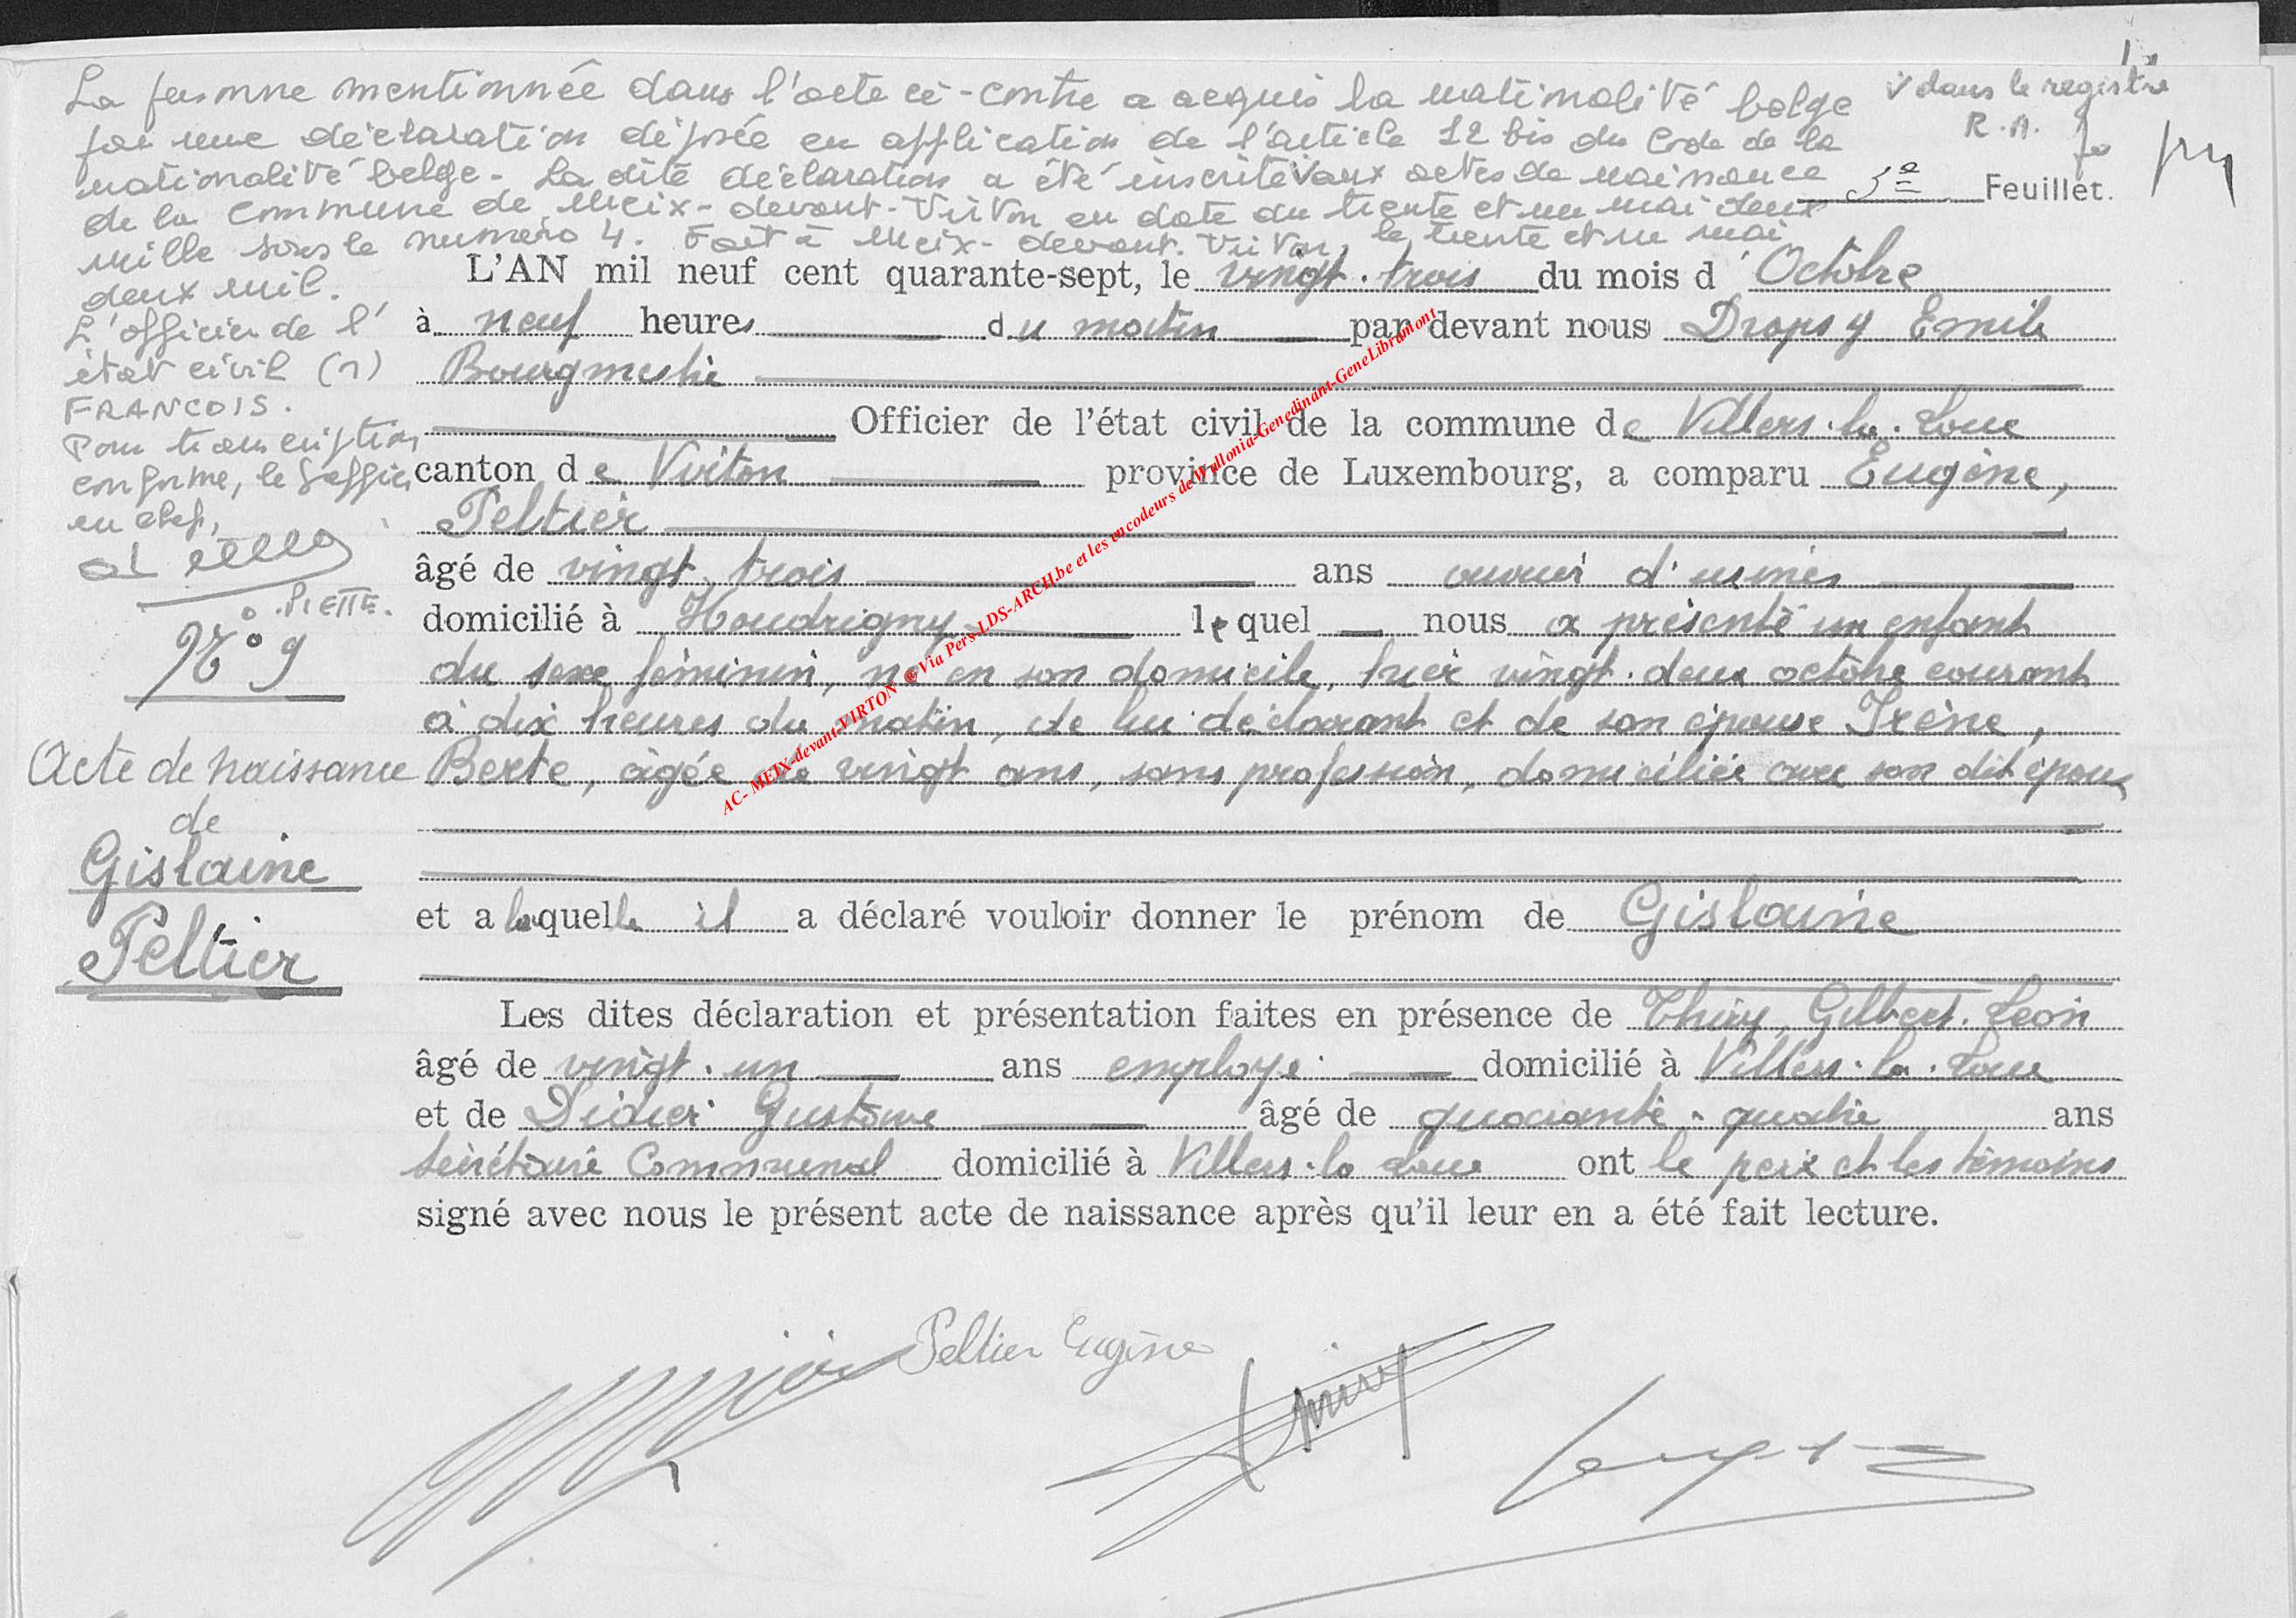 La personne mentionnée dans l'acte ci-contre a acquis la nationalité belge
par une déclaration déposée en application de l'article 12 bis du Code de la
nationalité belge. La dite déclaration a été inscrite √ aux actes de naissance
de la commune de Meix-devant-Virton en date du trente et un mai deux
mille sous le numéro 4. Fait à Meix-devant-Virton, le trente et un mai
deux mil.
L'officier de l'
état civil (s)
FRANCOIS.
Pour transcription
conforme, le Greffier
en chef,
PIETTE.
√ dans le registre
R.A.
5e Feuillet.
N° 9
Acte de naissance
de
Gislaine
Peltier
L'AN mil neuf cent quarante-sept, le vingt-trois du mois d'Octobre
à neuf heures du matin par devant nous Dropsy Emile
Bourgmestre
Officier de l'état civil de la commune de Villers-la-Loue
canton de Virton province de Luxembourg, a comparu Eugène,
Peltier
âgé de vingt-trois ans ouvrier d'usines
domicilié à Houdrigny lequel nous a présenté un enfant
du sexe féminin, né en son domicile, hier vingt-deux octobre courant
à dix heures du matin, de lui déclarant et de son épouse Irène,
Berte, âgée de vingt ans, sans profession, domiciliée avec son dit époux
et a laquelle il a déclaré vouloir donner le prénom de Gislaine
Les dites déclaration et présentation faites en présence de Thiry, Gilbert-Léon
âgé de vingt-un ans employé domicilié à Villers-la-Loue
et de Didier Gustave âgé de quarante-quatre ans
Secrétaire Communal domicilié à Villers-la Loue ont le père et les témoins
signé avec nous le présent acte de naissance après qu'il leur en a été fait lecture.
Peltier Eugène
AC- MEIX-devant-VIRTON @Via Pers-LDS-ARCH.be et les encodeurs de Wallonia-Genedinant-GeneLibramont